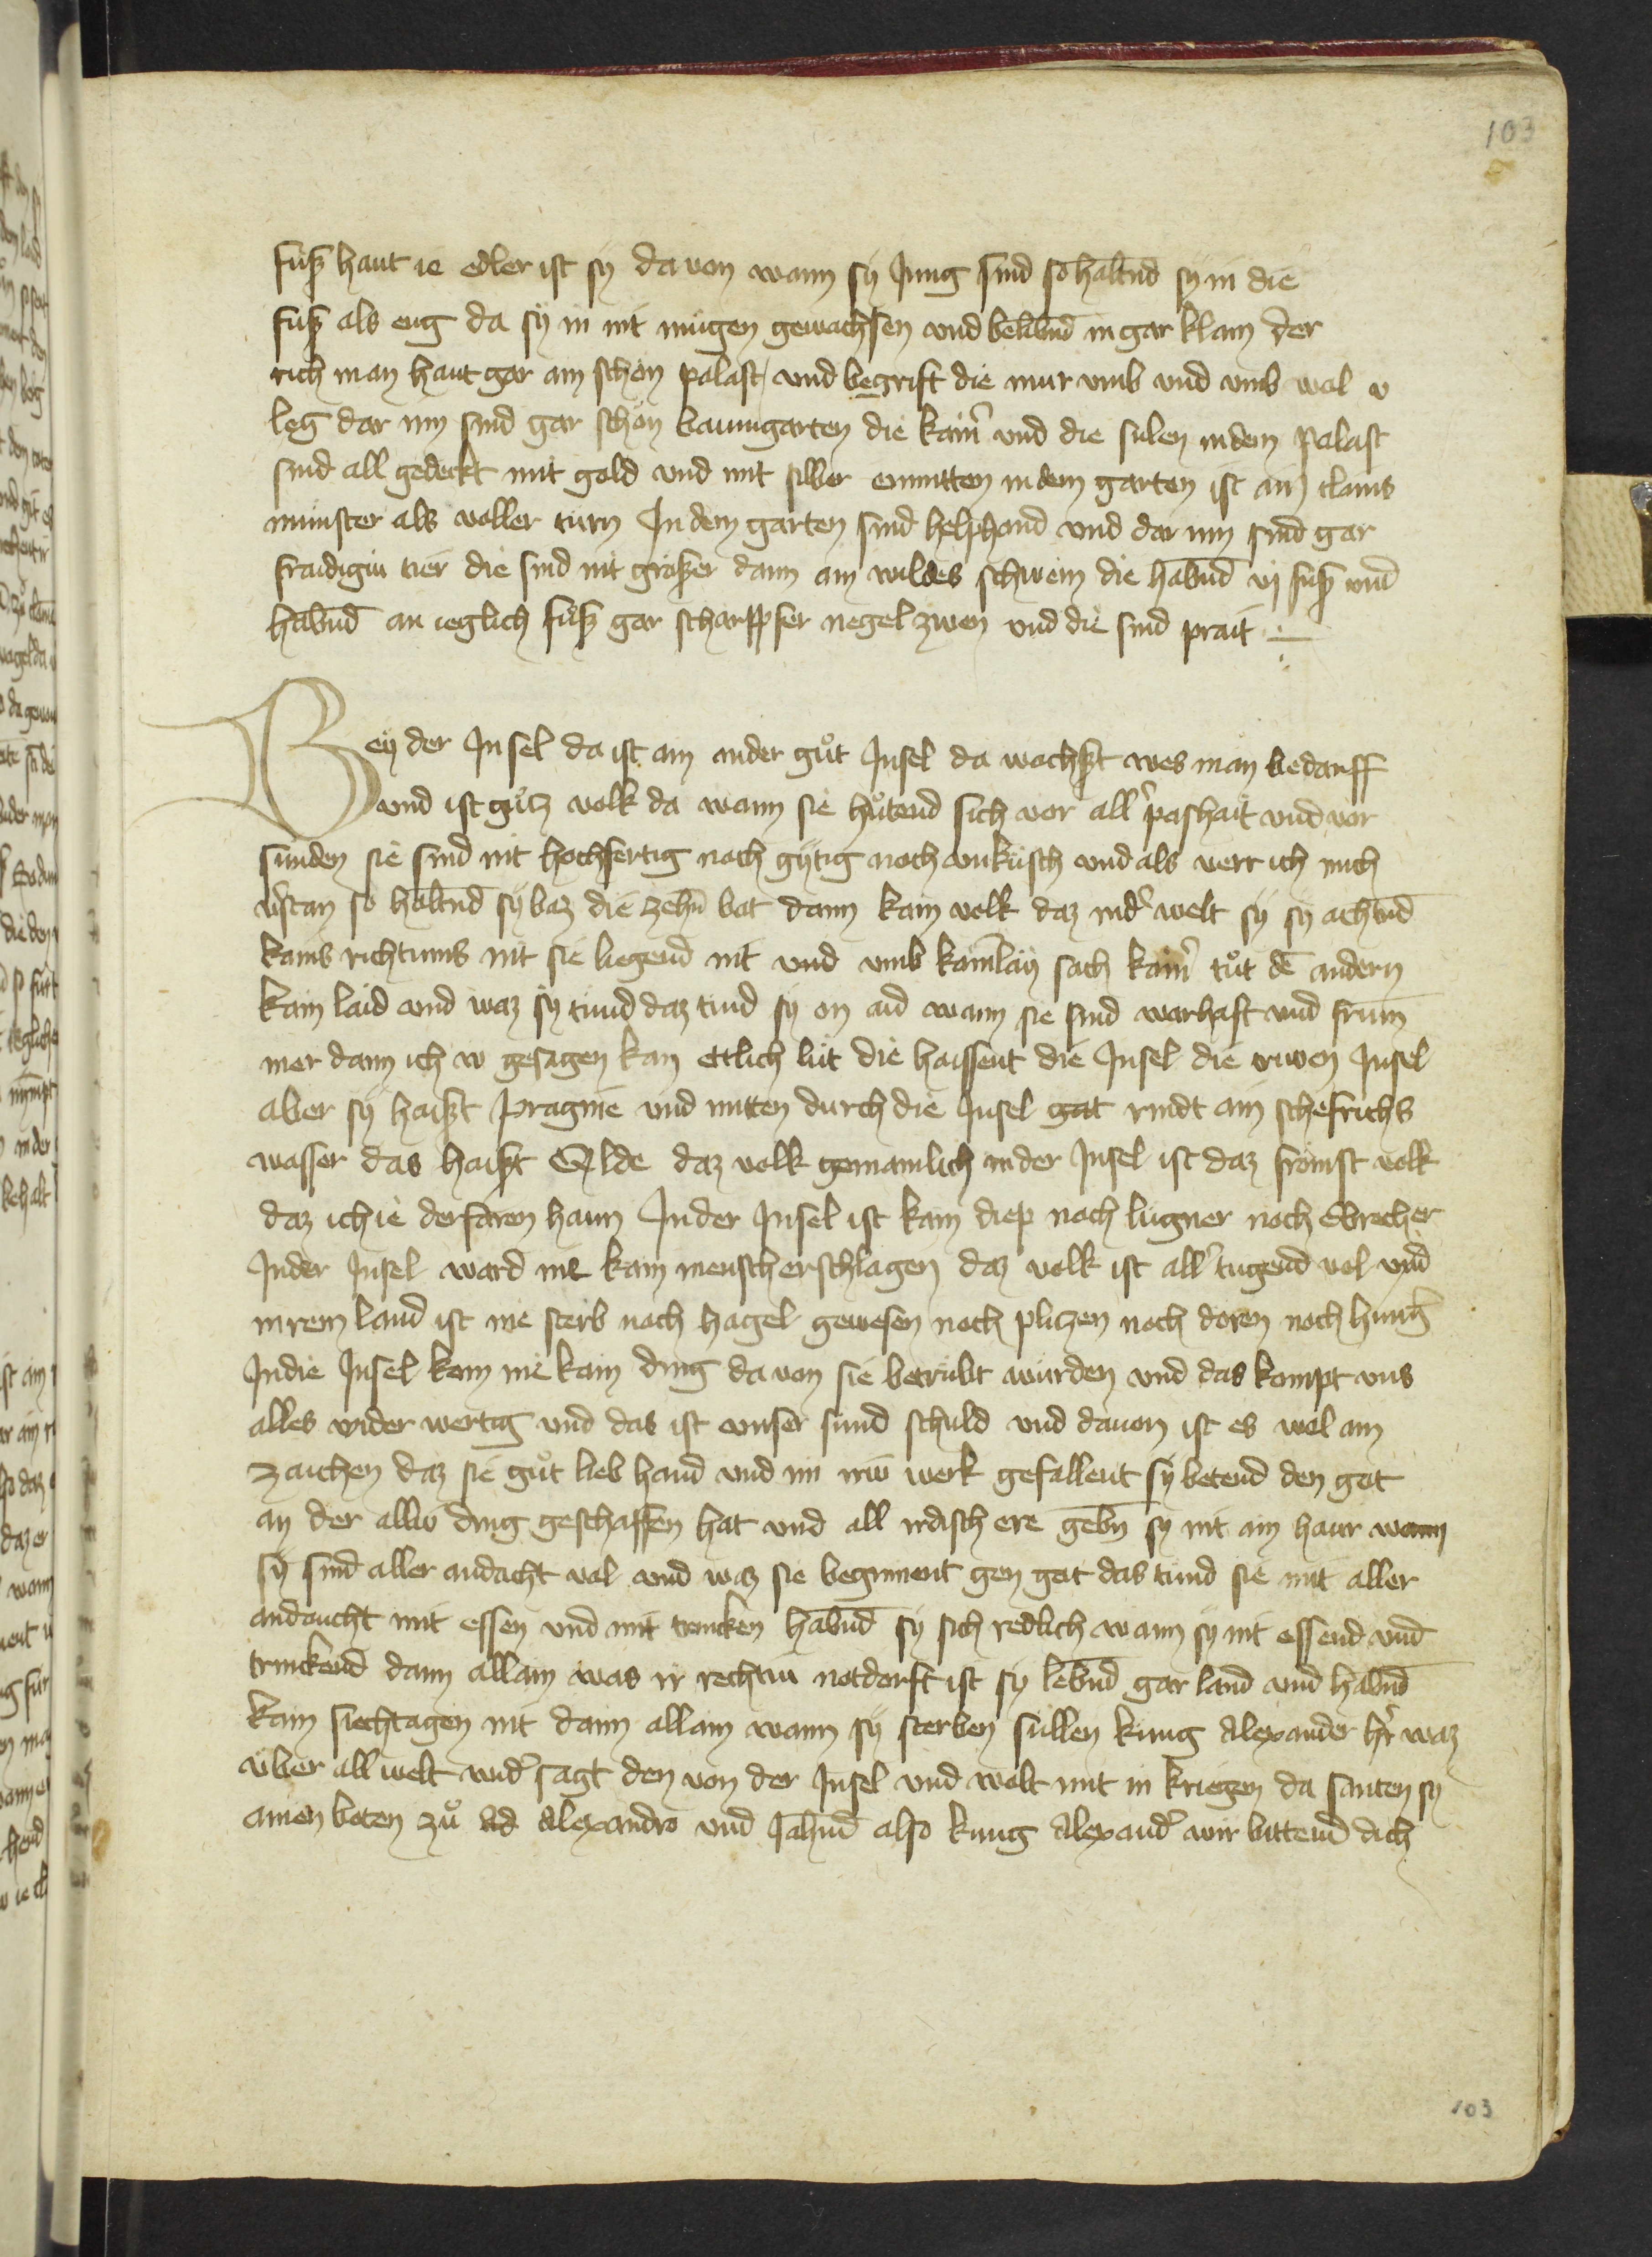 103
fuͤß haut ie edler ist sy da von wann sÿ Jung sind so habnd sÿ in die
fuß als eng da sÿ in nit mugen gewachsen vnd belibnd in gar klain der
rich man haut gar ain schön palast / vnd begrift die mur vmb vnd vmb wol v
leg dar inn sind gar schön baumgarten die kamr̄ vnd die sulen in dem palast
sind all gedeckt mit gold vnd mit silber enmitten in dem garten ist ain clains
munster als voller turn In dem garten sind helphand vnd dar inn sind gar
fraidigiu tier die sind nit größer dann ain wildes schwein die habnd vj fuß vnd
habnd an ieglich fuß gar scharpfer negel zwen vnd die sind prait
Beÿ der Insel da ist ain ander guͦt Insel da wachßt wes man bedarff
vnd ist guͦtz volk da wann sie huͤtend sich vor all' poshait vnd vor
sunden sie sind nit hochfertig noch gytig noch vnküsch vnd als verr ich mich
v'stan so habnd sÿ baz die zehn bot dann kain volk daz in d' welt sÿ sÿ achtnd
kains richtums nit sie liegend nit vnd vmb kainlaÿ sach kainr̄ tuͦt dē andern
kain laid vnd waz sÿ tund daz tund sÿ on aid wann sie sind warhaft vnd frum
mer dann ich v gesagen kan ettlich lut die haissent die Insel die truwen Insel
aber sÿ haißt Pragme vnd mitten durch die Insel gat rindt ain schefrichs
wasser das haißt Elde daz volk gemainlich in der Insel ist daz fromst volk
daz ich ie derfaren haun In der Insel ist kain diep noch lugner noch Ebrecher
In der Insel ward nie kain mensch erschlagen daz volk ist all' tugend vol vnd
in rem land ist nie sterb noch hagel gewesen noch plitzen noch doren noch hung'
In die Insel kom nie kain ding da von sie betrubt wurden vnd das kompt vns
alles wider wertig vnd das ist vnnser sund schuld vnd davon ist es wol ain
zaichen daz sie guͦt lieb hand vnd im iriu werk gefallent sÿ betend den got
an der alliu ding geschaffen hat vnd all irdisch ere gebn sÿ nit ain haur wann
sÿ sind aller andacht vol vnd waz sie beginnent gen got das tund sie mit aller
andaucht mit essen vnd mit trincken habnd sÿ sich redlich wann sÿ nit essend vnd
trinckend dann allain was ir rechtiu notdorft ist sÿ lebnd gar land vnd habnd
kain siechtagen nit dann allain wann sÿ sterben sullen kung Alexander h'r waz
vber all welt wid' sagt den von der Insel vnd wolt mit in kriegen da santen sÿ
ainen boten zuͦ Alexandro vnd Jahnd also kung Alexand' wir bittend dich
103